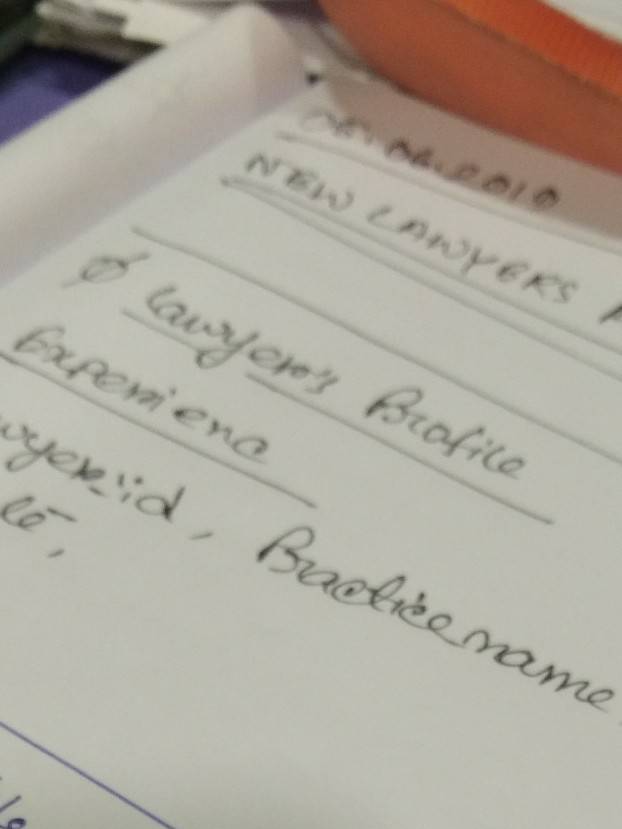 06.06.2010
NEW LAWYERS
Lawyer's Profile
Experienc
wyer_id, Practice_name